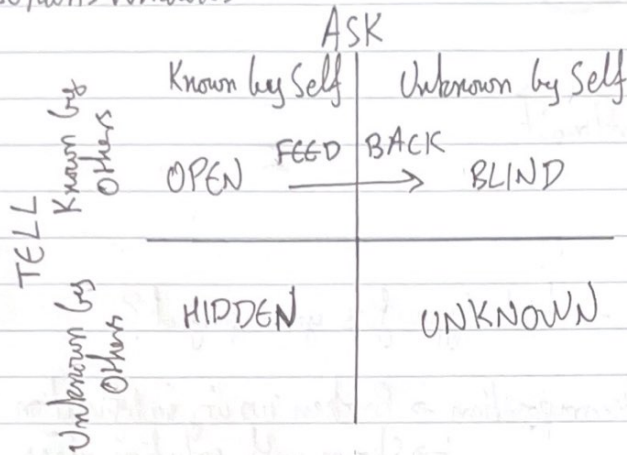 ASK
Known by Self Unknown by Self
TELL
Known by
Others
FEED BACK
OPEN BLIND
Unknown by
Others
HIDDEN UNKNOWN